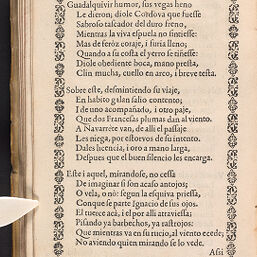 Guadalquivir humor, sus vegas heno
Le dieron; diole Cordova que fuesse
Sabroso tascador del duro freno,
Mientras la viva espuela no sintiesse:
Mas de feròz coraje, i furia lleno;
Quando a su costa el yerro se tiñesse:
Diole obediente boca, mano presta,
Clin mucha, cuello en arco, i breve testa.
Sobre este, desmintiendo su viaje,
En habito galan salio contento;
I de uno acompañado, i otro paje,
Que dos Francesas plumas dan al viento.
A Navarrete van, de alli el passaje
Les niega, por estorvos de su intento,
Dales licencia, i oro a mano larga,
Despues que el buen silencio les encarga.
Este i aquel, mirandose, no cessa
De imaginar si son acaso antojos;
O vela, o nò: segun la esquiva priessa,
Con que se parte Ignacio de sus ojos.
El tuerce acà, i el por alli atraviessa;
Pisando ya barbechos, ya rastrojos:
Que mientras va en su rucio, al viento excede;
No aviendo quien mirando se lo vede.
Assi